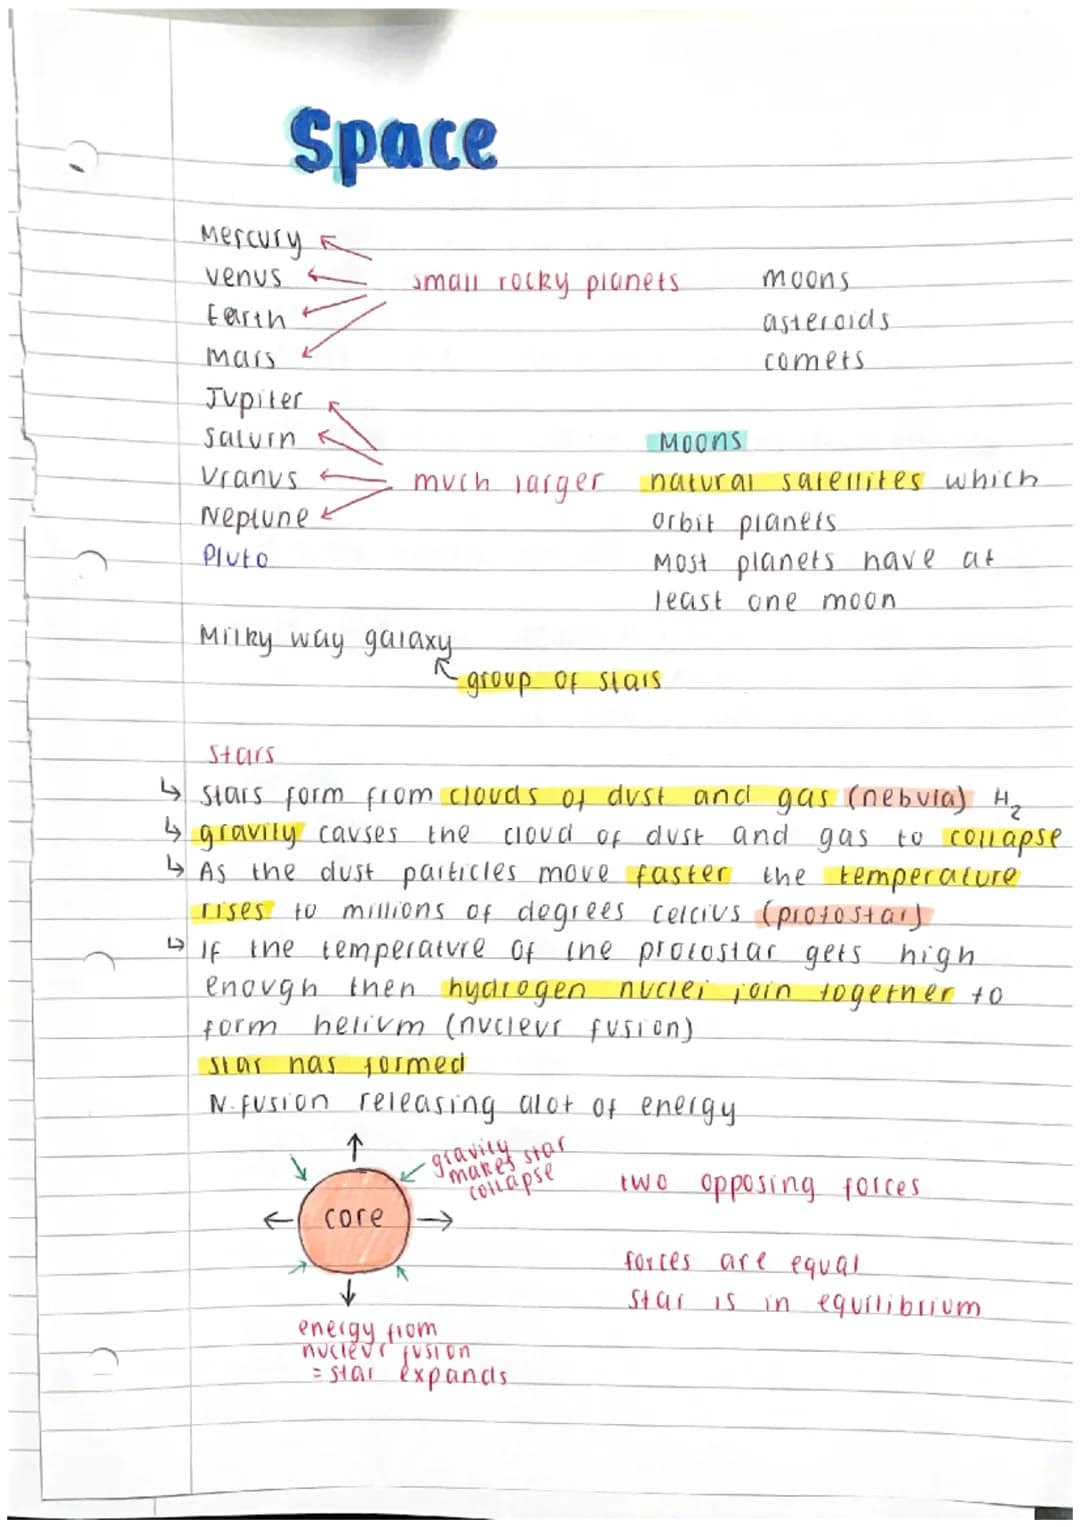 Space
Mercury
Venus
Earth
Mars
small rocky planets
moons
asteroids
comets
Jupiter
Saturn
Uranus
Neptune
Pluto
much larger
Moons
natural satellites which
orbit planets
Most planets have at
least one moon
Milky way galaxy
group of stars
Stars
↳ Stars form from clouds of dust and gas (nebula) H₂
↳ gravity causes the cloud of dust and gas to collapse
↳ As the dust particles move faster the temperature
rises to millions of degrees celcius (protostar)
↳ If the temperature of the protostar gets high
enough then hydrogen nuclei join together to
form helium (nucleur fusion)
Star has formed
N.fusion releasing alot of energy
gravity
makes star
collapse
core
energy from
nucleur fusion
= star expands
two opposing forces
forces are equal
Star is in equilibrium